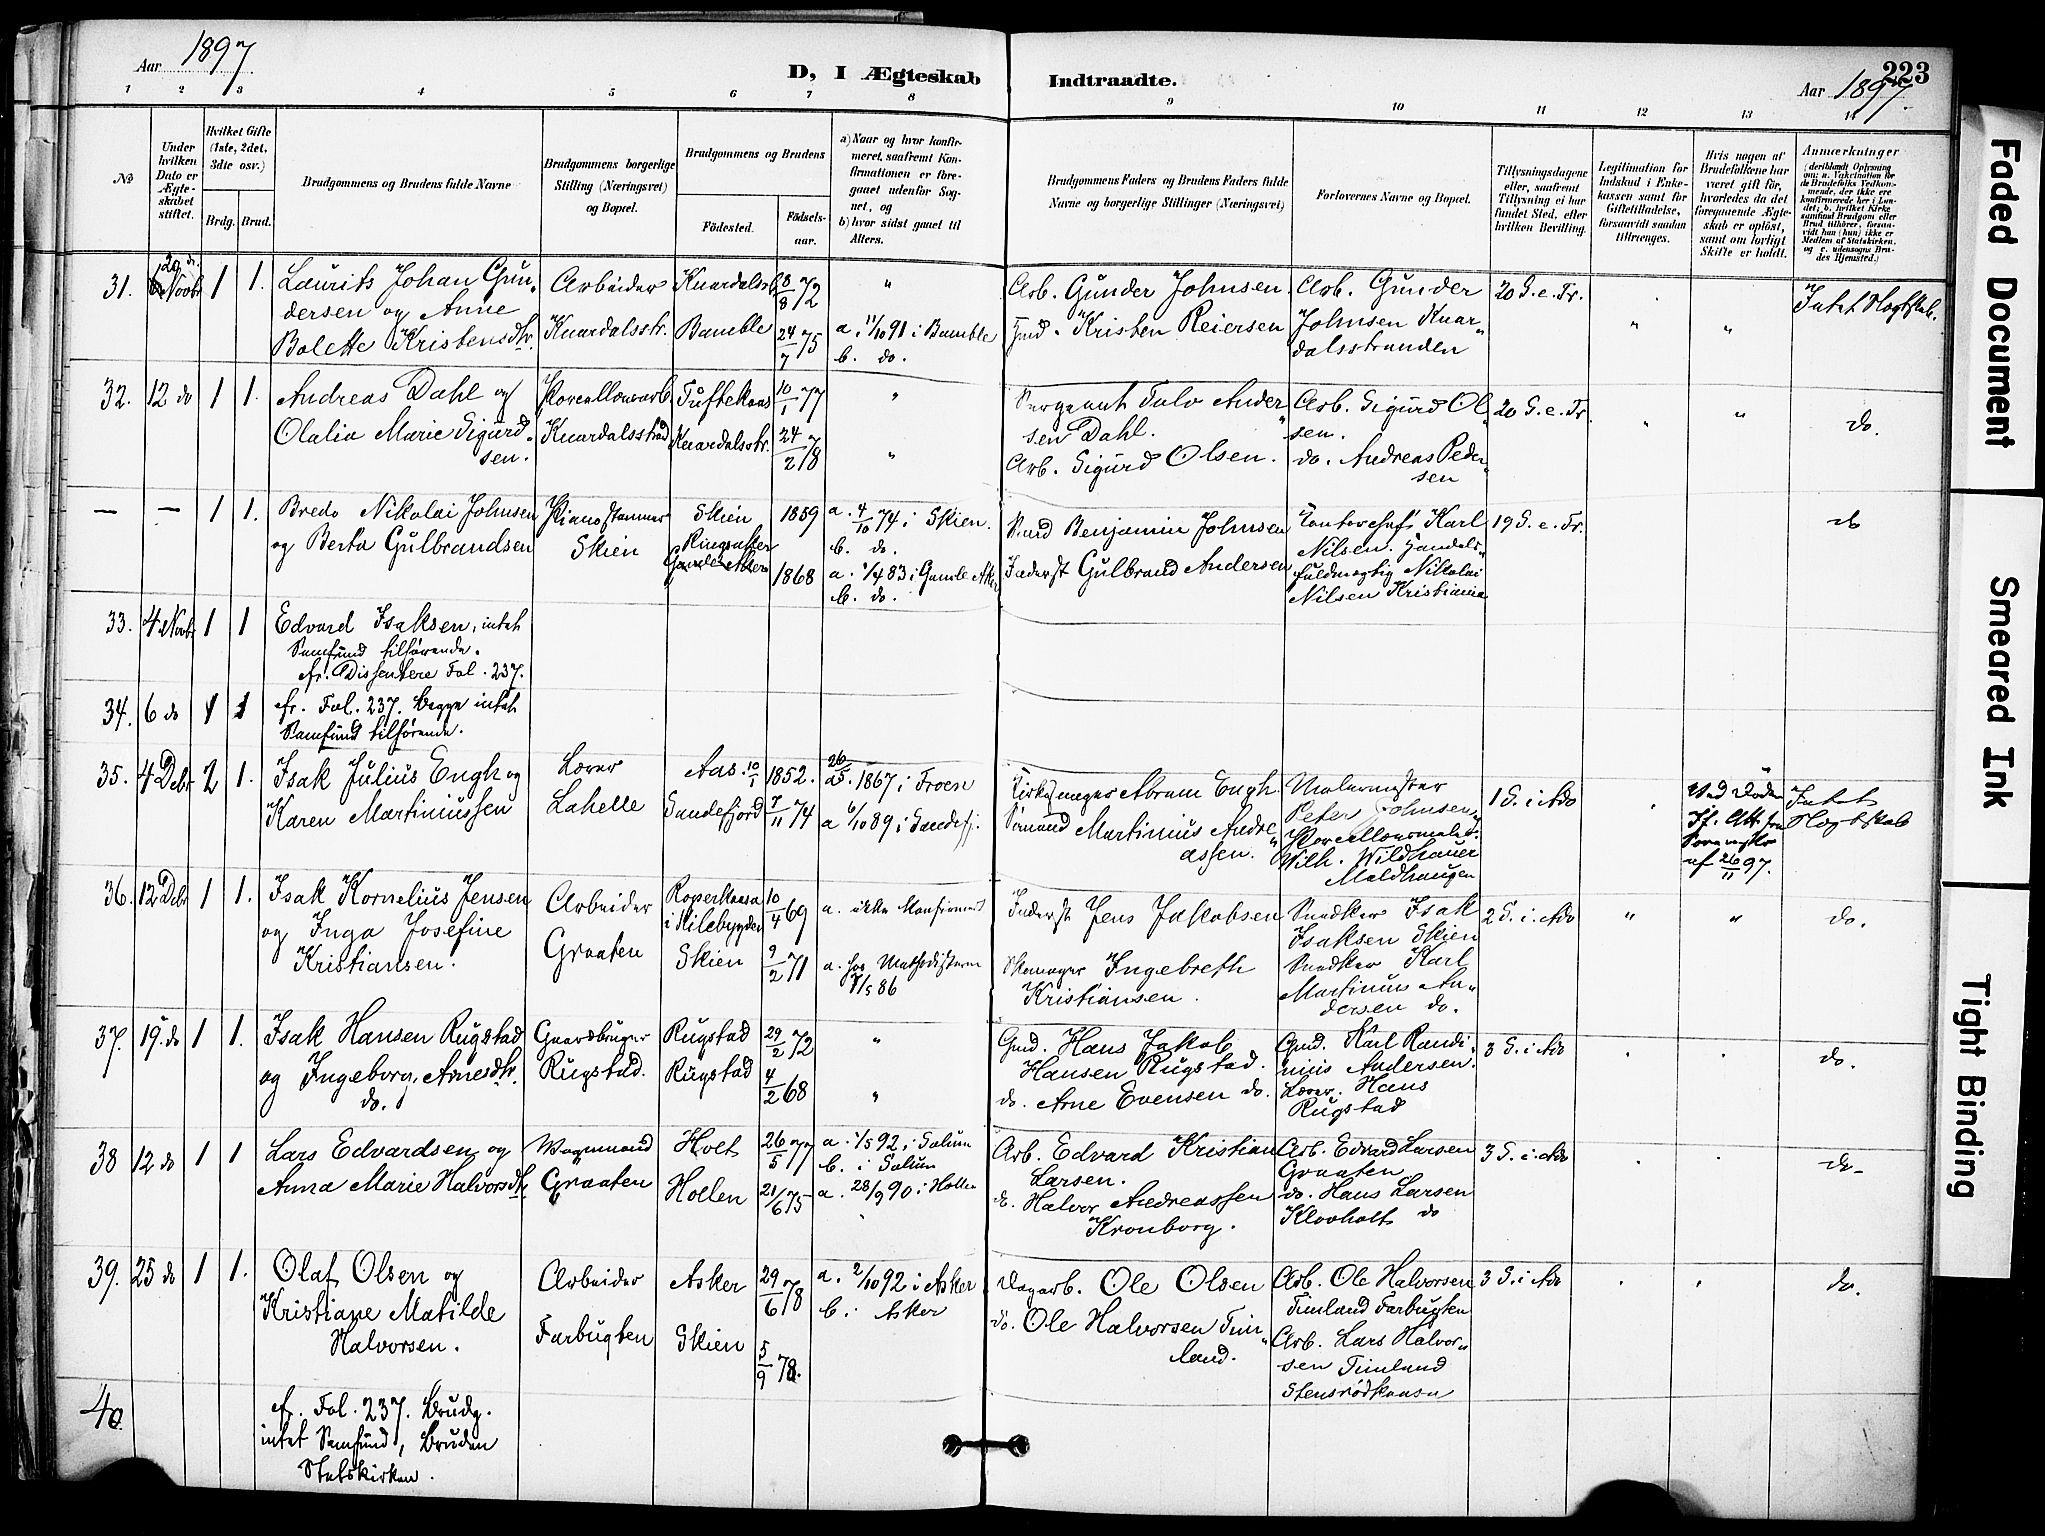 Aar 1897
D, I Ægteskab Indtraadte.
223
Aar 1897
1 2 3 4 5 6 7 8 9 10 11 12 13 14
No
Under hvilken Dato er Ægteskabet stiftet.
Hvilket Gifte (1ste, 2det, 3die osv.)
Brdg. Brud.
Brudgommens og Brudens fulde Navne
Brudgommens borgerlige Stilling (Næringsvei) og Bopæl.
Brudgommens og Brudens
Födested.
Födselsaar.
a) Naar og hvor konfirmeret, saafremt Konfirmationen er foregaaet udenfor Sognet, og
b) hvor sidst gaaet til Alters.
Brudgommens Faders og Brudens Faders fulde Navne og borgerlige Stillinger (Næringsvei)
Forlovernes Navne og Bopæl.
Tillysningsdagene eller, saafremt Tillysning ei har fundet Sted, efter hvilken Bevilling.
Legitimation for Indskud i Enkekassen samt for Giftetilladelse, forsaavidt saadan tiltrænges.
Hvis nogen af Brudefolkene har været gift för, hvorledes da det foregaaende Ægteskab er oplöst, samt om lovligt Skifte er holdt.
Anmærkninger
31. 20 Novbr 1 1.
Laurits Johan Gun-
dersen og Anne
Bolette Kristensdtr.
Arbeider
Knardalsstr.
Bamble
3/8 72
24/7 75
a. 11/10 91 i Bamble
b. do.
Arb. Gunder Johnsen
Gmd. Kristen Reiersen
Arb. Gunder
Johnsen Knar-
dalsstranden
20 S. e. Tr.
Intet Slægtskab.
32. 12 do 1 1.
Andreas Dahl og
Olalia Marie Sigurd-
sen.
Porcellænsarb
Tuftekaas
Knardalsstr.
10/1 77
24/2 78
Sergeant Talv Ander-
sen Dahl.
Arb. Sigurd Olsen.
Arb. Sigurd Ol-
sen.
do. Andreas Peder-
sen
20 S. e. Tr.
do.
— — 1 1.
Bredo Nikolai Johnsen
og Berta Gulbrandsen
Pianostemmer
Skien
Skien
Ringsaker
Gamle Aker
1859
1868
a. 4/10 74 i Skien.
b. do.
a. 1/4 83 i Gamle Aker
b. do.
Benjamin Johnsen
Inderst Gulbrand Andersen
Kontorchef Karl
Nilsen. Handels-
fuldmægtig Nikolai
Nilsen Kristiania
19 S. e. Tr.
do
33. 4 Novbr 1 1
Edvard Isaksen, intet
Samfund tilhørende.
cfr. Dissentere Fol. 237.
34. 6 do 1 1
cfr. Fol. 237. Begge intet
Samfund tilhørende.
35. 4 Debr 2 1.
Isak Julius Engh og
Karen Martiniussen
Lærer
Lahelle
Aas. 10/1
Sandefjord
1852.
7/11 74
26/5. 1867 i Froen
a 6/10 89 i Sandefj.
Kirkesanger Abram Engh.
Sømand Martinius Andre-
assen.
Malermester
Peter Johnsen,
Porcellænsmaler
Wilh. Wildhauer
Moldhaugen
1 S. i Adv
Ved Døden
If. Att. fra
Sorenskr
af 26/11 97.
Intet
Slægtskab
36. 12 Debr 1 1.
Isak Kornelius Jensen
og Inga Josefine
Kristiansen.
Arbeider
Graaten
Roperkaasa
i Hilebygden
Skien
10/4 69
9/2 71
a. ikke konfirmeret
a. hos Methodisterne
7/5 86
Inderst Jens Jakobsen
Skomager Ingebreth
Kristiansen.
Snedker Isak
Isaksen Skien
Snedker Karl
Martinius An-
dersen do.
2 S. i Adv
do.
37. 19. do 1 1.
Isak Hansen Rugstad
og Ingeborg Arnesdtr.
do.
Gaardbruger
Rugstad.
Rugstad
Rugstad
29/2 72
4/2 68
Gmd. Hans Jakob
Hansen Rugstad.
do. Arne Evensen do.
Gmd. Karl Randi-
nius Andersen.
Lærer. Hans
Rugstad
3 S. i Adv
do.
38 12 do 1 1
Lars Edvardsen og
Anna Marie Halvorsdtr.
Vognmand
Graaten
Holt
Hollen
26/5 77
21/6 75
a. 1/5 92 i Solum
b. i Solum
a. 28/9 90 i Hollen
Arb. Edvard Kristian
Larsen.
do. Halvor Andreassen
Kronborg.
Arb. Edvard Larsen
Graaten
do. Hans Larsen
Klovholt do
3 S. i Adv
do.
39. 25 do 1 1.
Olaf Olsen og
Kristiane Matilde
Halvorsen.
Arbeider
Farbugten
Asker
Skien
29/6 78
5/9 78.
a. 2/10 92 i Asker
b. i Asker
Dagarb. Ole Olsen
do. Ole Halvorsen Tim-
land.
Arb. Ole Halvorsen
Timland Farbugten
Arb. Lars Halvor-
sen Timland
Stensrødkaasa
3 S. i Adv
do.
40.
cfr. Fol. 237. Brudg.
intet Samfund, Bruden
Statskirken.
Faded Document
Smeared Ink
Tight Binding